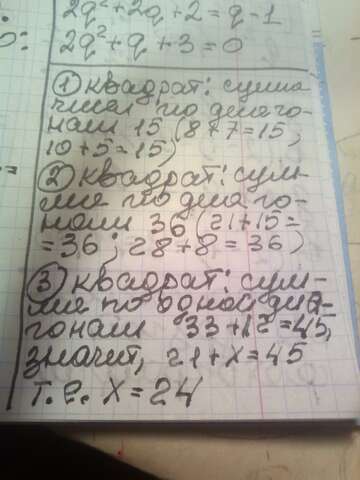 2q²+2q+2=q-1
2q²+q+3=0
① квадрат: сумма
чисел по диаго-
нали 15 (8+7=15,
10+5=15)
② квадрат: сум-
ма по диаго-
нали 36 (21+15=
=36; 28+8=36)
③ квадрат: сум-
ма по одной диа-
гонали 33+12=45,
значит, 21+x=45
т.е. x=24